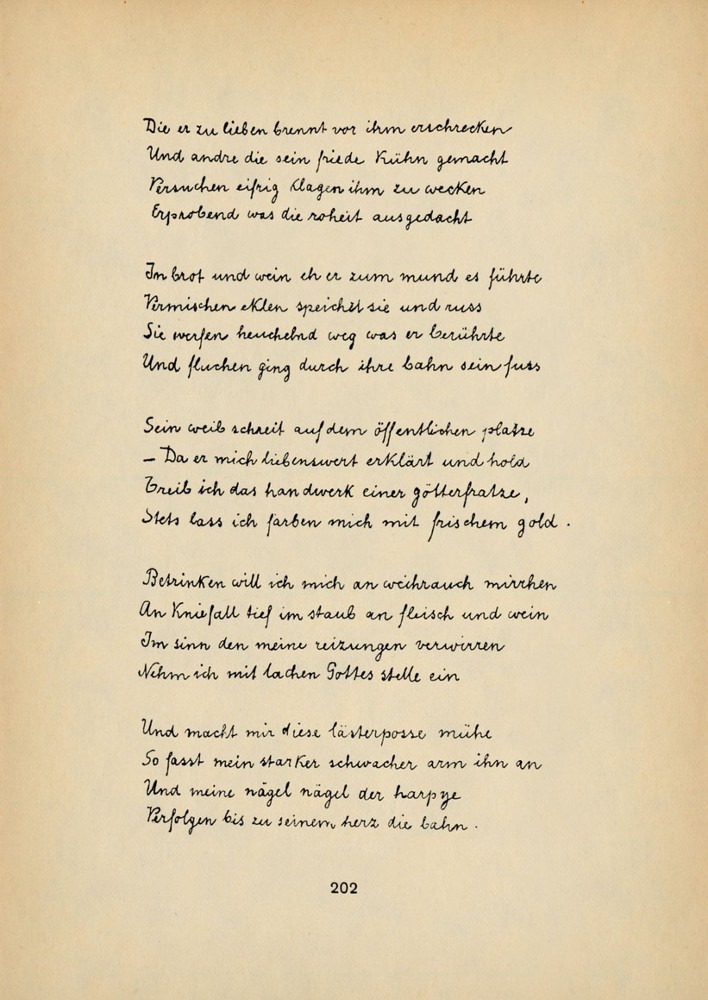 Die er zu lieben brennt vor ihm erschrecken
Und andre die sein friede kühn gemacht
Versuchen eifrig klagen ihm zu wecken
Erprobend was die roheit ausgedacht
In brot und wein eh er zum mund es führte
Vermischen eklen speichel sie und russ
Sie werfen heuchelnd weg was er berührte
Und fluchen ging durch ihre bahn sein fuss
Sein weib schreit auf dem öffentlichen platze
– Da er mich liebenswert erklärt und hold
Treib ich das handwerk einer götterfratze,
Stets lass ich färben mich mit frischem gold.
Betrinken will ich mich an weihrauch mirrhen
An kniefall tief im staub an fleisch und wein
Im sinn den meine reizungen verwirren
Nehm ich mit lachen Gottes stelle ein
Und macht mir diese lästerposse mühe
So fasst mein starker schwacher arm ihn an
Und meine nägel nägel der harpye
Verfolgen bis zu seinem herz die bahn.
202